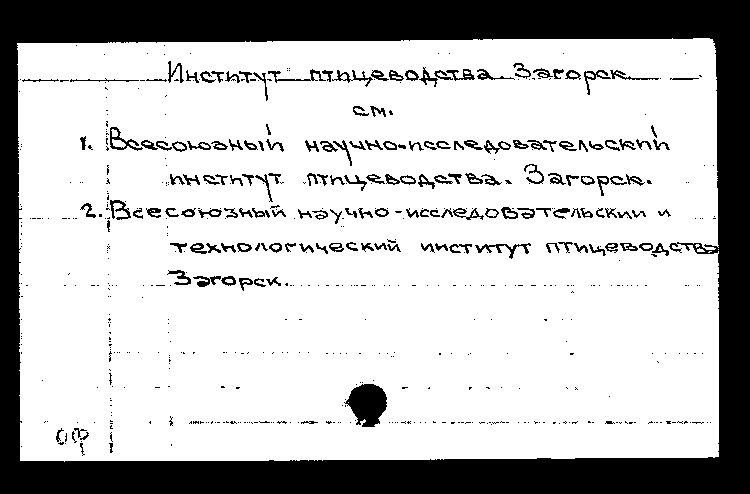 Институт птицеводства. Загорск
см.
1. Всесоюзный научно-исследовательский
институт птицеводства. Загорск.
2. Всесоюзный научно-исследовательский и
технологический институт птицеводства
Загорск.
ОФ